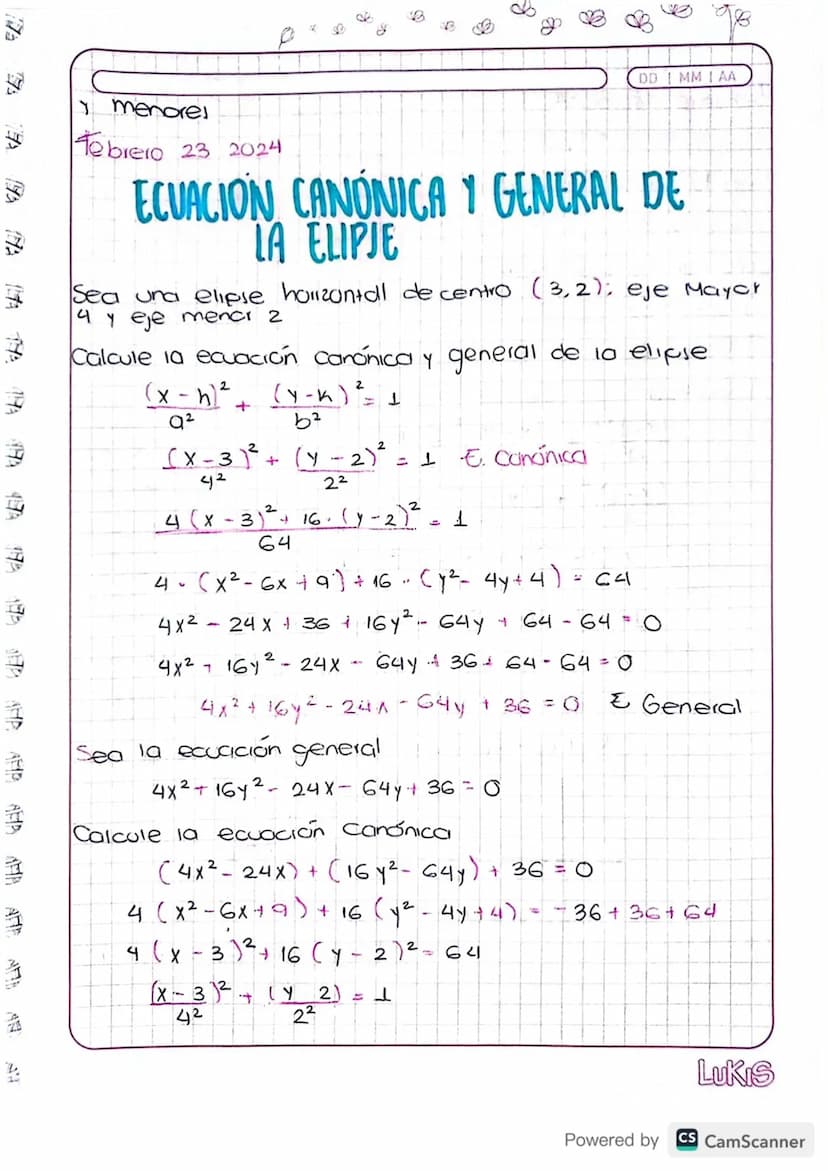 DD | MM | AA
y menores
Febrero 23 2024
ECUACIÓN CANÓNICA Y GENERAL DE
LA ELIPSE
Sea una elipse horizontal de centro (3,2); eje Mayor
4 y eje menor 2
Calcule la ecuación canónica y general de la elipse
(x - h)² / a² + (y - k)² / b² = 1
(x - 3)² / 4² + (y - 2)² / 2² = 1 E. Canónica
4(x - 3)² + 16 · (y - 2)² / 64 = 1
4 · (x² - 6x + 9) + 16 · (y² - 4y + 4) = 64
4x² - 24x + 36 + 16y² - 64y + 64 - 64 = 0
4x² + 16y² - 24x - 64y + 36 + 64 - 64 = 0
4x² + 16y² - 24x - 64y + 36 = 0 E General
Sea la ecuación general
4x² + 16y² - 24x - 64y + 36 = 0
Calcule la ecuación canónica
(4x² - 24x) + (16y² - 64y) + 36 = 0
4 (x² - 6x + 9) + 16 (y² - 4y + 4) = - 36 + 36 + 64
4 (x - 3)² + 16 (y - 2)² = 64
(x - 3)² / 4² + (y 2) / 2² = 1
LUKIS
Powered by CS CamScanner